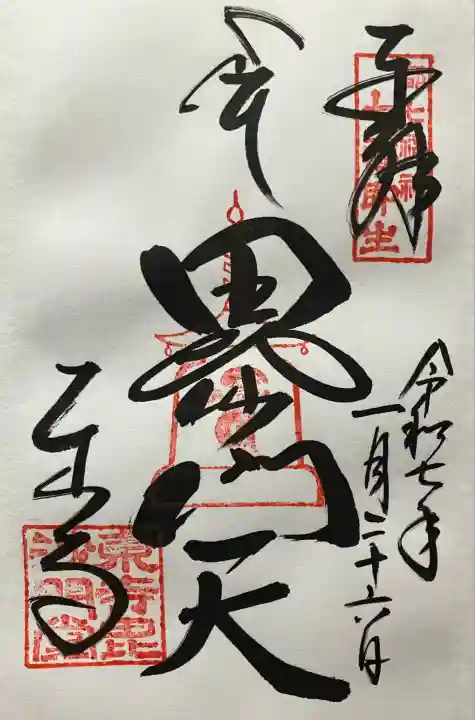 奉拝
令和七年
一月二十六日
毘沙門天
東寺
東寺毘
沙門堂